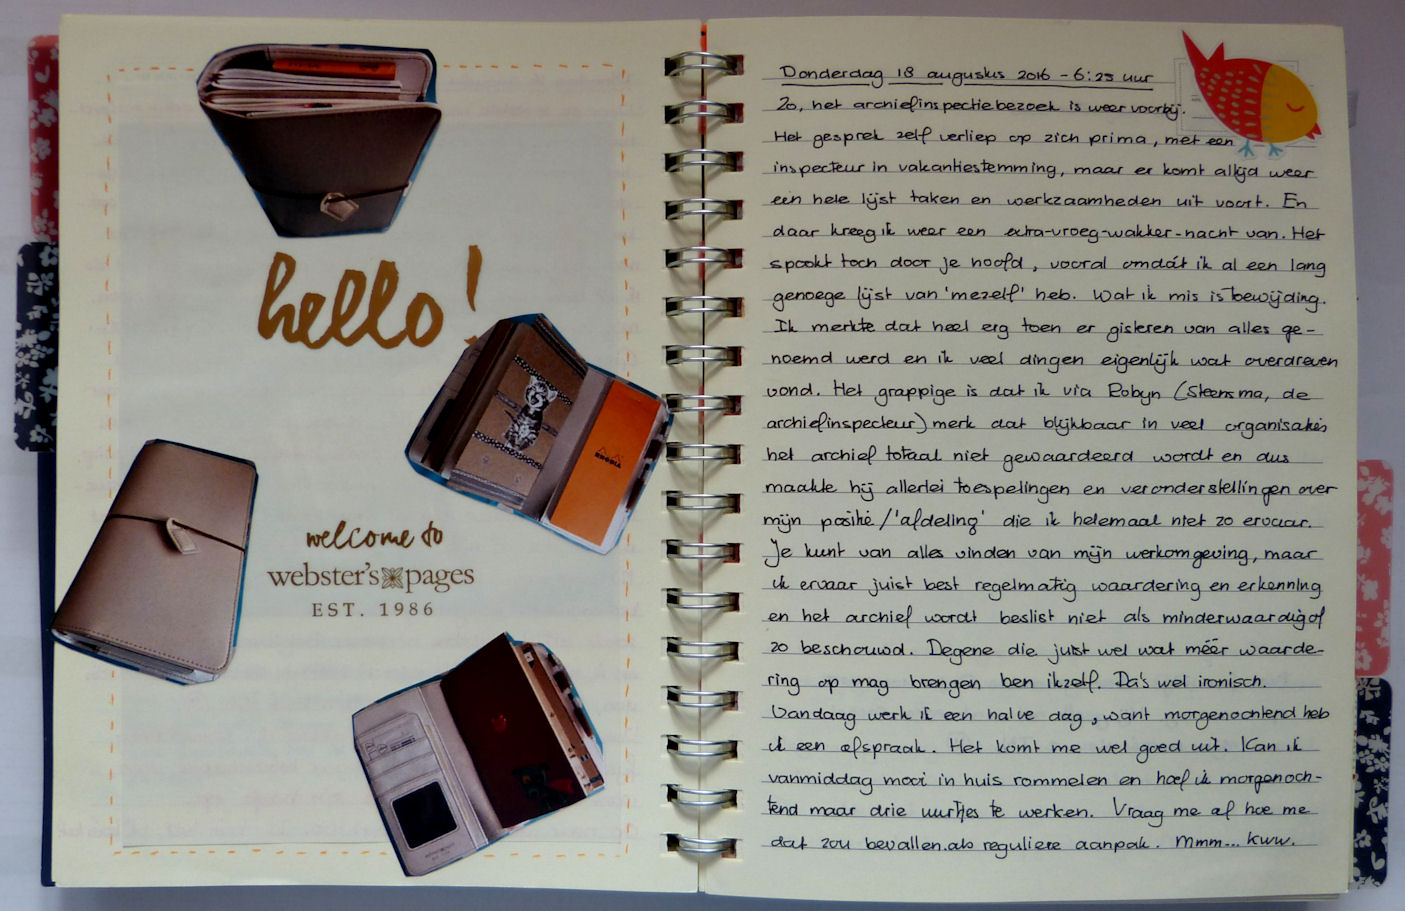 hello!
RHODIA
welcome to
webster's pages
EST. 1986
Donderdag 18 augustus 2016 - 6:25 uur
Zo, het archiefinspectiebezoek is weer voorbij.
Het gesprek zelf verliep op zich prima, met een
inspecteur in vakantiestemming, maar er komt altijd weer
een hele lijst taken en werkzaamheden uit voort. En
daar kreeg ik weer een extra-vroeg-wakker-nacht van. Het
spookt toch door je hoofd, vooral omdát ik al een lang
genoege lijst van 'mezelf' heb. Wat ik mis is toewijding.
Ik merkte dat heel erg toen er gisteren van alles ge-
noemd werd en ik veel dingen eigenlijk wat overdreven
vond. Het grappige is dat ik via Robyn (Steensma, de
archiefinspecteur) merk dat blijkbaar in veel organisaties
het archief totaal niet gewaardeerd wordt en dus
maakte hij allerlei toespelingen en veronderstellingen over
mijn positie/'afdeling' die ik helemaal niet zo ervaar.
Je kunt van alles vinden van mijn werkomgeving, maar
ik ervaar juist best regelmatig waardering en erkenning
en het archief wordt beslist niet als minderwaardig of
zo beschouwd. Degene die juist wel wat méér waarde-
ring op mag brengen ben ikzelf. Da's wel ironisch.
Vandaag werk ik een halve dag, want morgenochtend heb
ik een afspraak. Het komt me wel goed uit. Kan ik
vanmiddag mooi in huis rommelen en hoef ik morgenoch-
tend maar drie uurtjes te werken. Vraag me af hoe me
dat zou bevallen als reguliere aanpak. Mmm... kww.